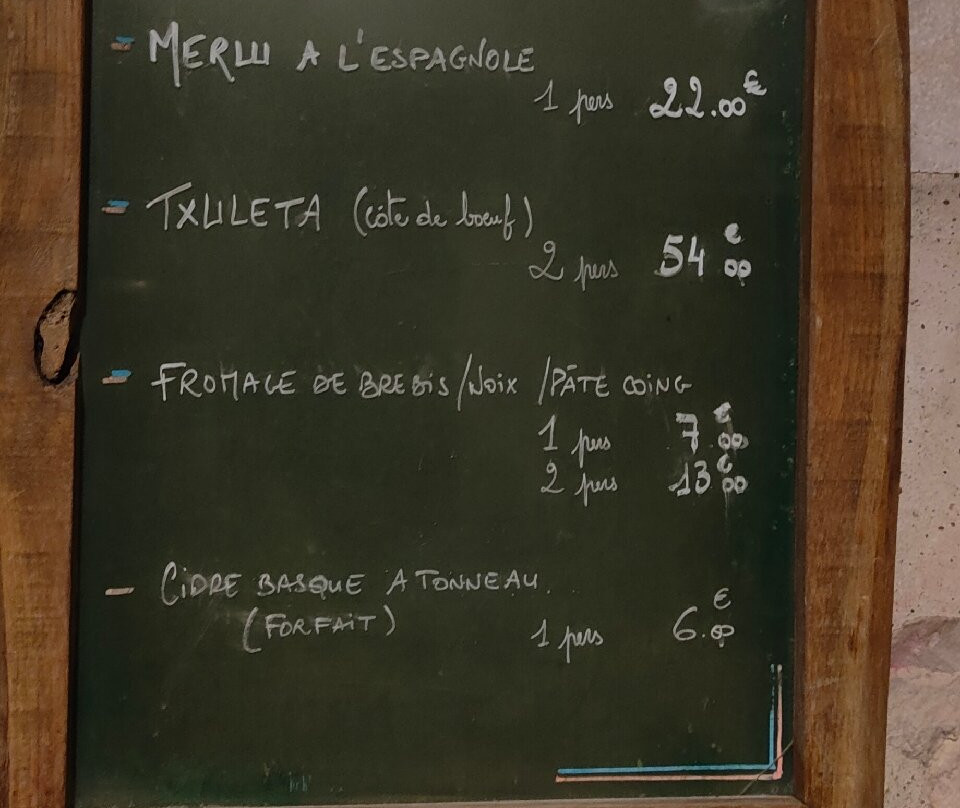 - MERLU A L'ESPAGNOLE
1 pers 22.00€
- TXULETA (côte de bœuf)
2 pers 54 00€
- FROMAGE DE BREBIS/NOIX/PÂTE COING
1 pers 7.00€
2 pers 13.00€
- CIDRE BASQUE A TONNEAU.
(FORFAIT)
1 pers 6.00€